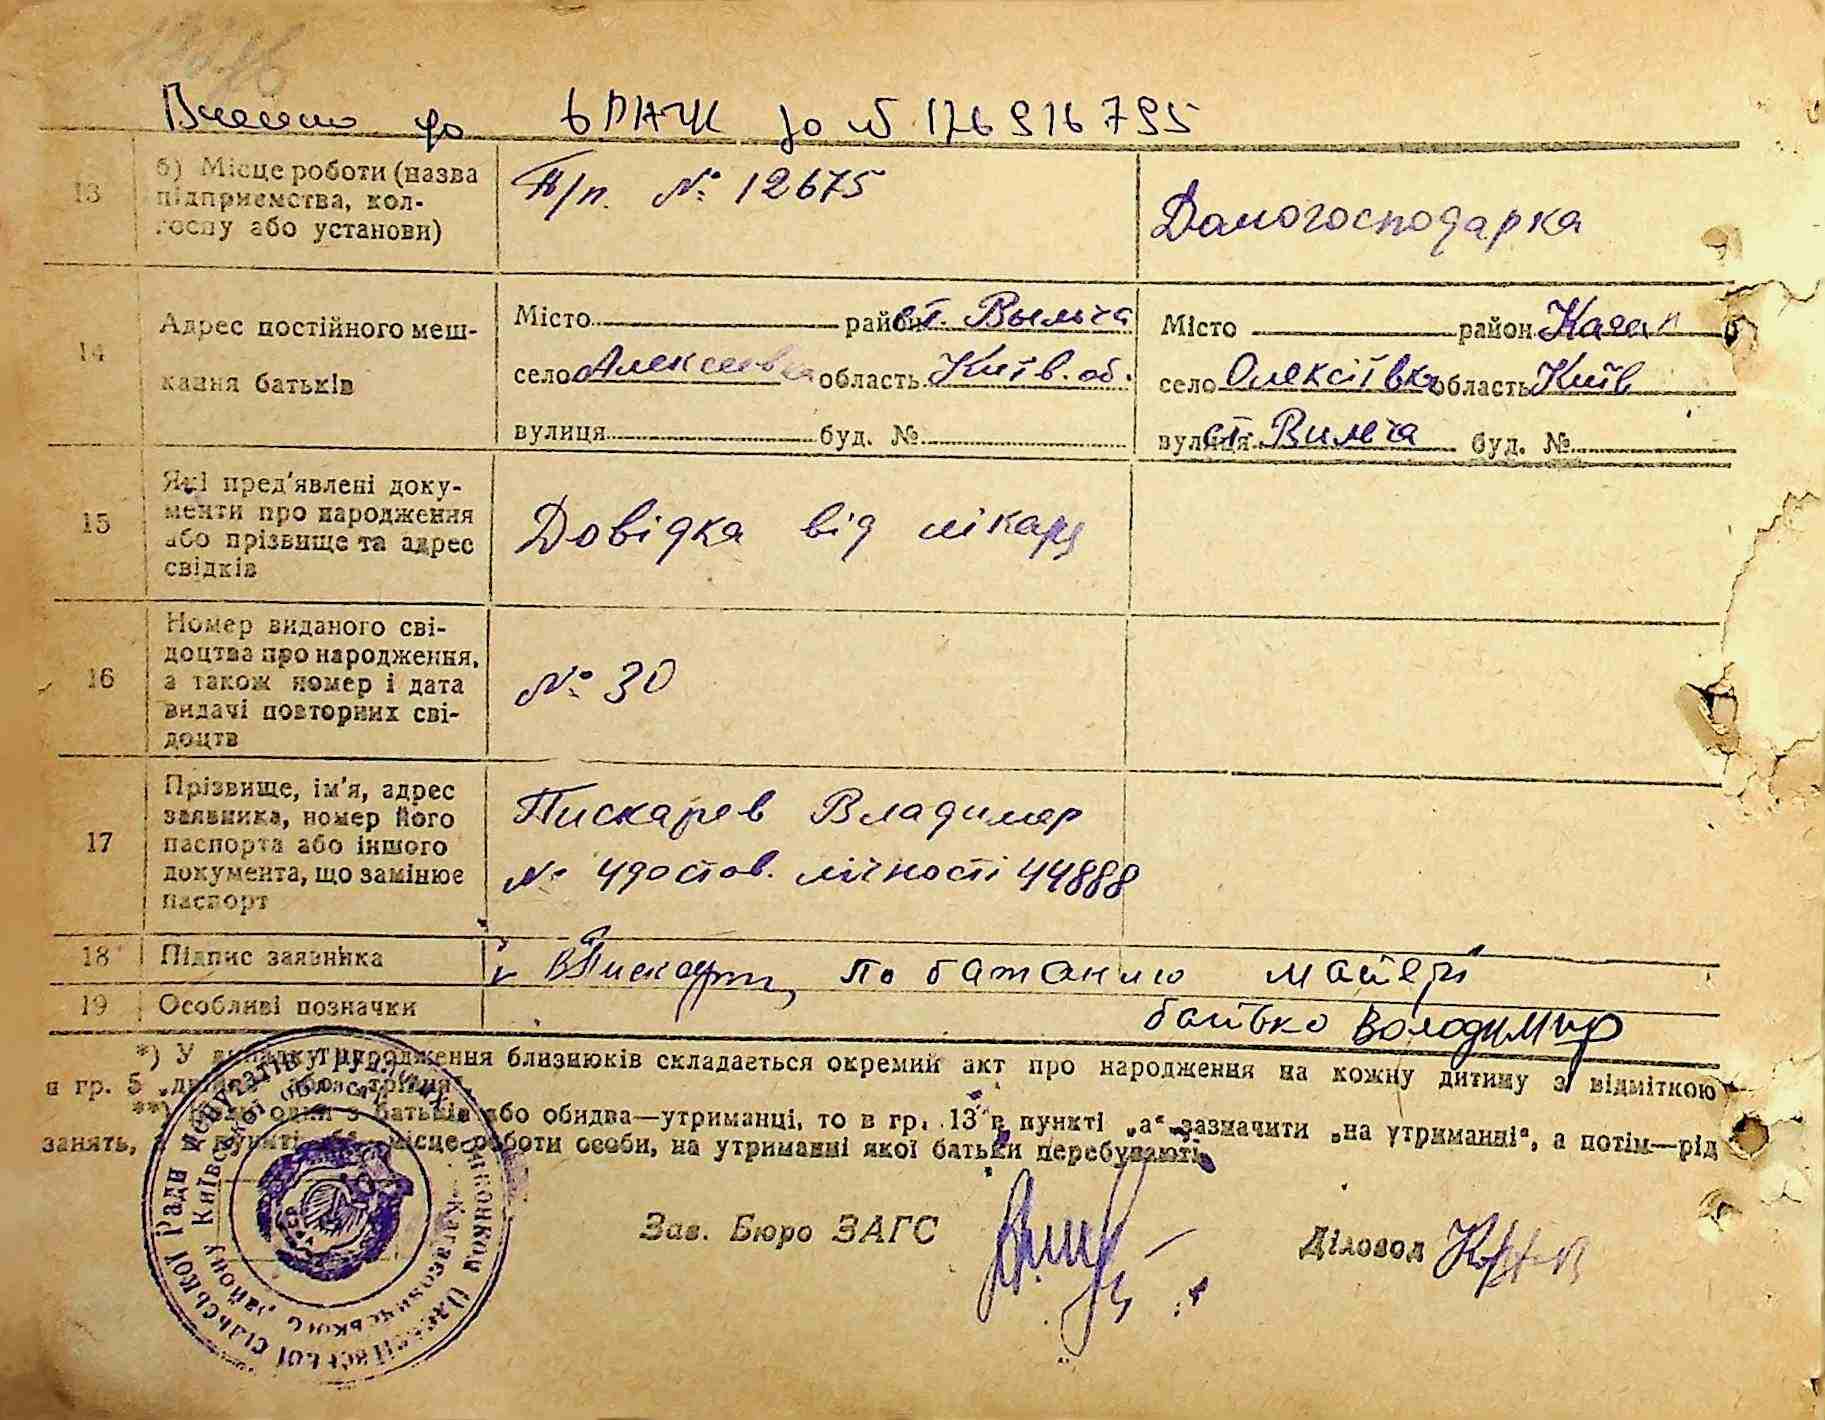 Внесено до ДРАЦС за № 176916795
13
б) Місце роботи (назва підприємства, колгоспу або установи)
П/п. № 12675
Домогосподарка
14
Адрес постійного мешкання батьків
Місто район ст. Вильча
село Алексеевка область Київ. об.
вулиця буд. №
Місто район Каган
село Олексіївка область Київ
вулиця ст. Вильча буд. №
15
Які пред'явлені документи про народження або прізвище та адрес свідків
Довідка від лікаря
16
Номер виданого свідоцтва про народження, а також номер і дата видачі повторних свідоцтв
№ 30
17
Прізвище, ім'я, адрес заявника, номер його паспорта або іншого документа, що замінює паспорт
Пискарев Владимер
№ удостов. лічності 44888
18
Підпис заявника
В Пискар по бажанню матері
19
Особливі позначки
батько Володимир
*) У випадку народження близнюків складається окремий акт про народження на кожну дитину з відміткою
в гр. 5 „двійня" або „трійня".
**) Якщо один з батьків або обидва—утриманці, то в гр. 13 в пункті „а" зазначити „на утриманні", а потім—рід
занять, а в пункті „б"—місце роботи особи, на утриманні якої батьки перебувають.
Зав. Бюро ЗАГС
Діловод
Виконком Олексіївської сільської Ради депутатів трудящих
Кагановичського району Київської області
УРСР